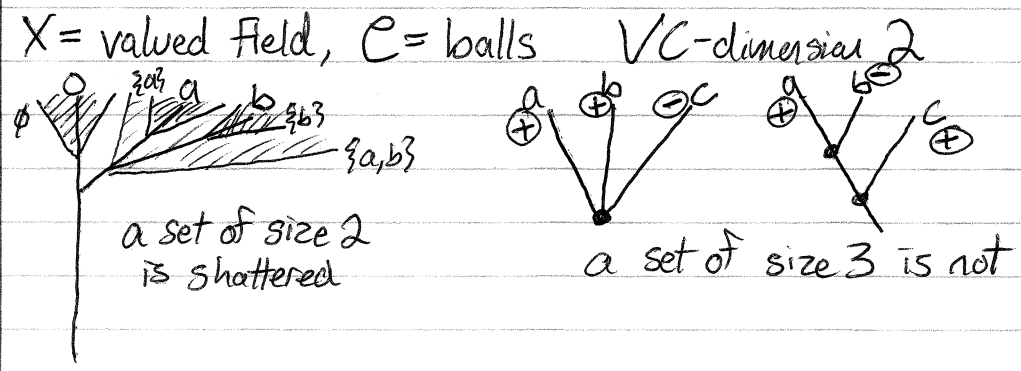 X = valued field, C = balls VC-dimension 2
0 {a} a b
∅ {b}
{a,b}
a set of size 2
is shattered
a b c
⊕ ⊕ ⊖
a b c
⊕ ⊖ ⊕
a set of size 3 is not